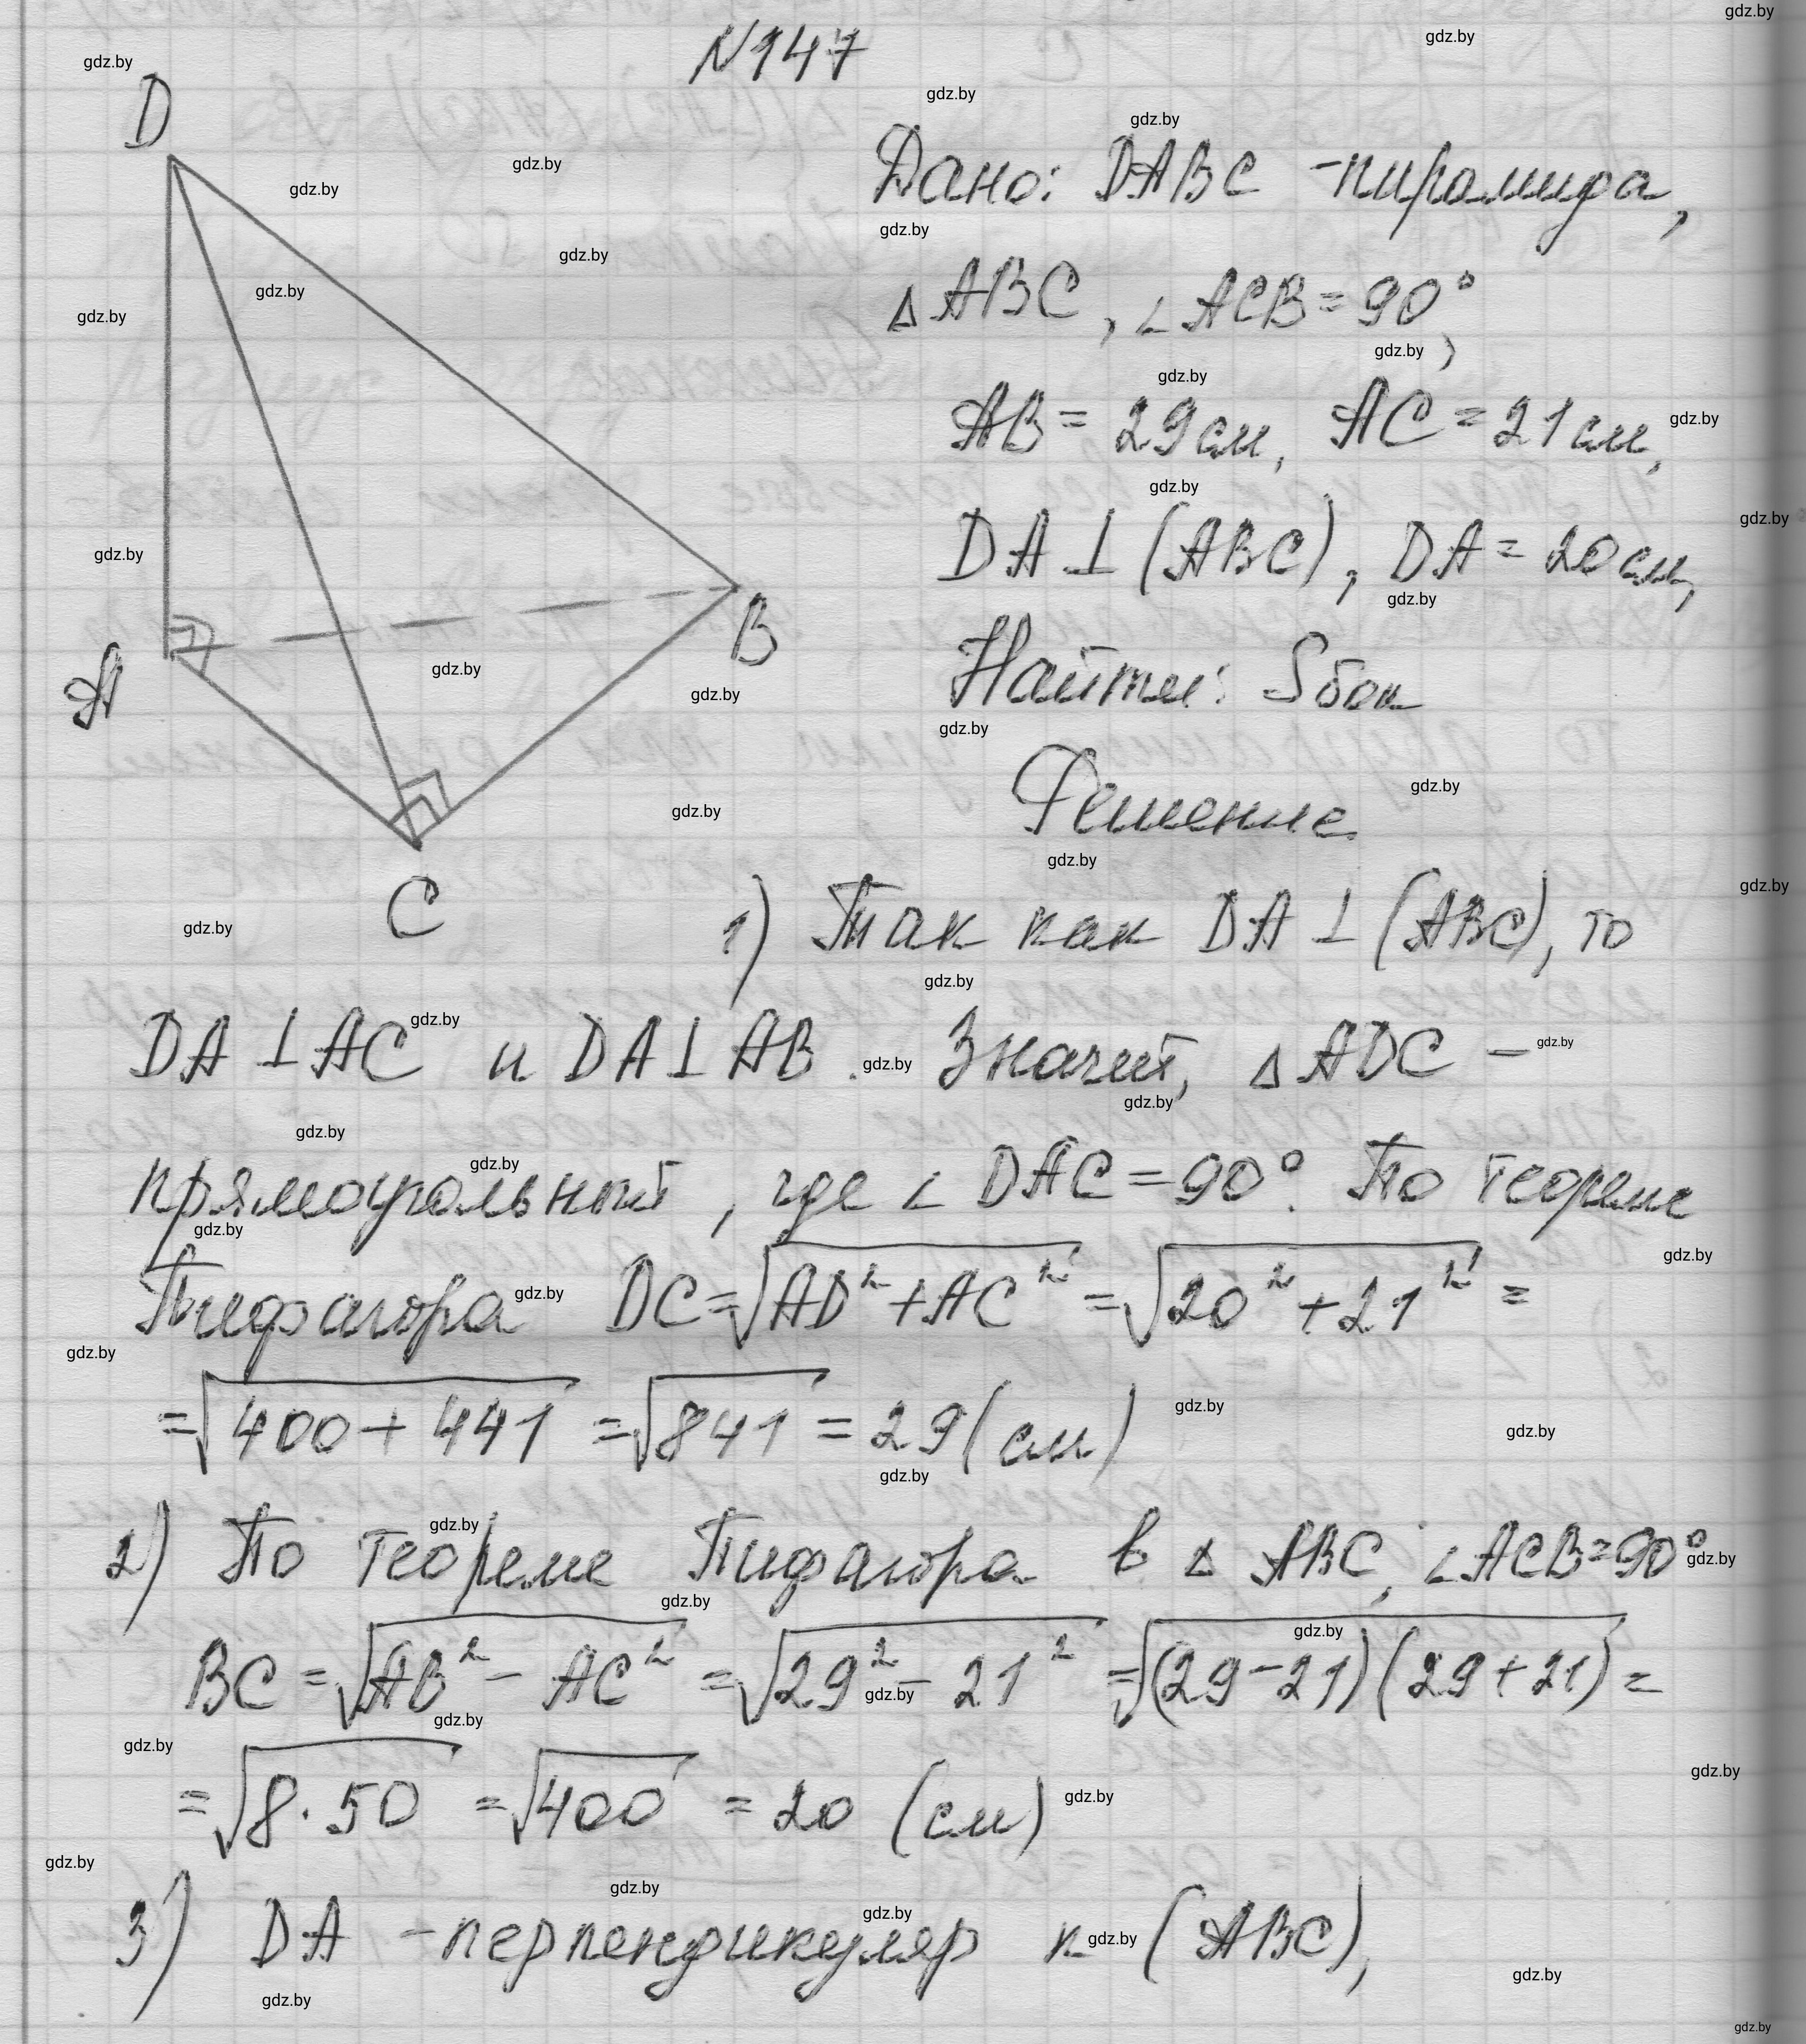 N147
D
A
B
C
Дано: DABC - пирамида,
△ABC, ∠ACB = 90°,
AB = 29 см, AC = 21 см,
DA ⊥ (ABC), DA = 20 см,
Найти: Sбок
Решение
1) Так как DA ⊥ (ABC), то
DA ⊥ AC и DA ⊥ AB. Значит, △ADC –
прямоугольный, где ∠DAC = 90°. По теореме
Пифагора DC = √(AD² + AC²) = √(20² + 21²) =
= √(400 + 441) = √841 = 29 (см)
2) По теореме Пифагора в △ ABC, ∠ACB = 90°
BC = √(AB² - AC²) = √(29² - 21²) = √((29-21)(29+21)) =
= √(8·50) = √400 = 20 (см)
3) DA - перпендикуляр к (ABC),
gdz.by